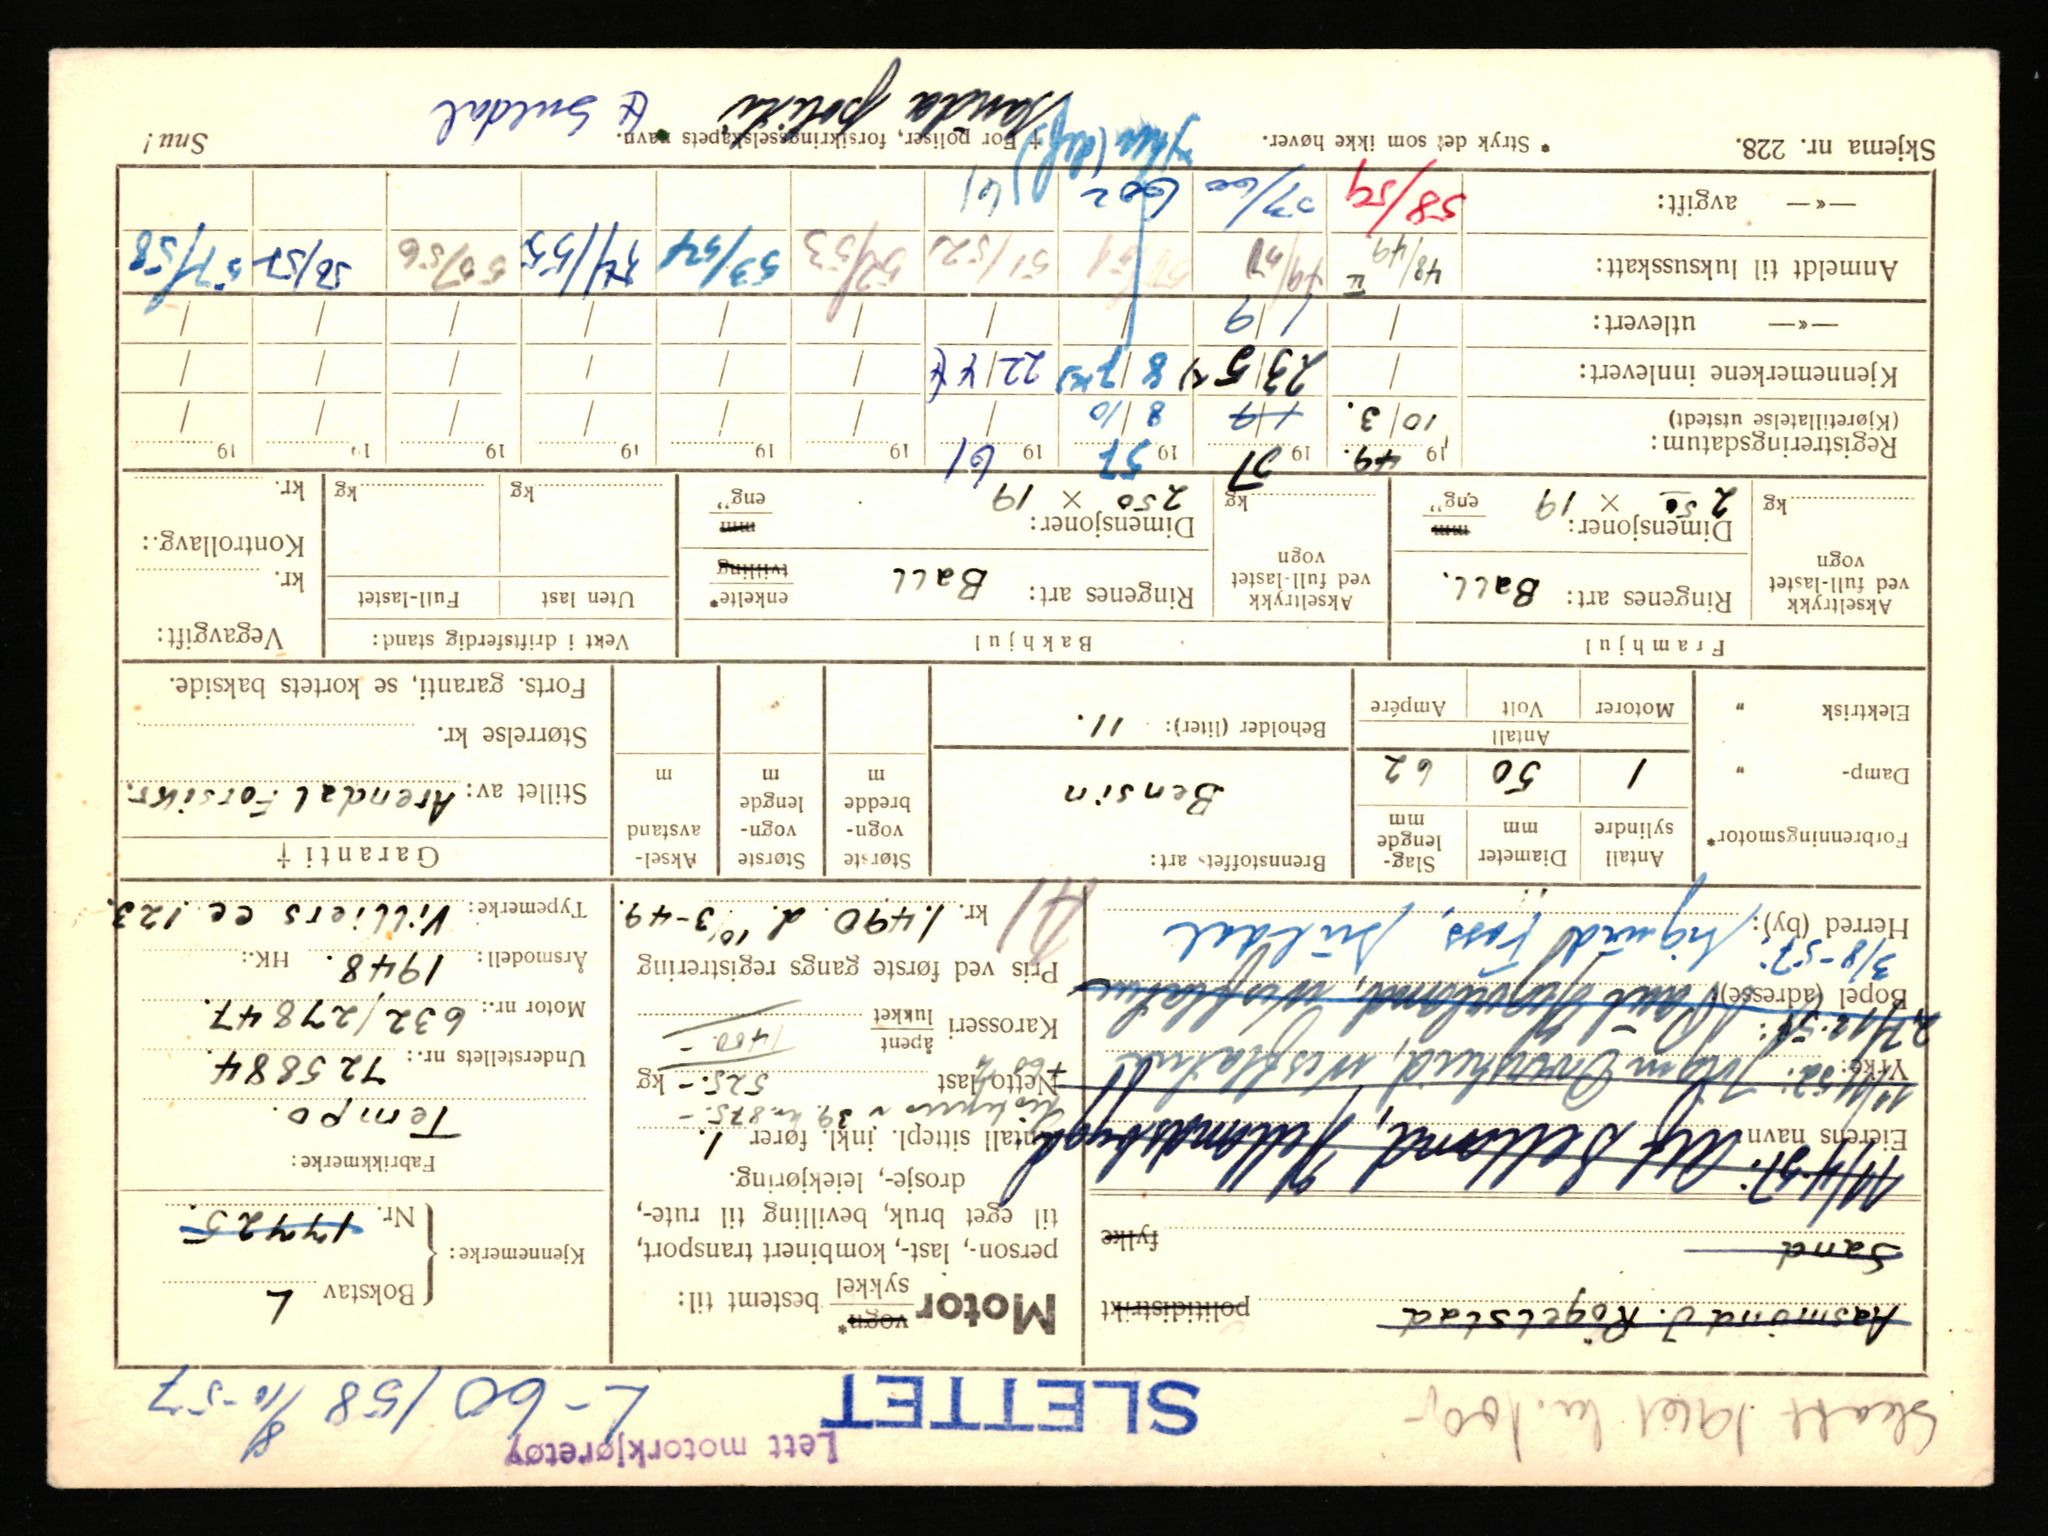 Skatt 1961 kr. 100,-
SLETTET
Lett motorkjøretøy
L-60158 8/10-57
Aasmund J. Røgelstad politidistrikt
Sand
fylke
11/4-51: Alf Selland, Jellandsbygd
Eierens navn:
11/4 52:
Yrke:
27/12-54:
Bopel (adresse):
3/8-57: Sigurd Foss, Suldal
Herred (by):
Motor vogn* sykkel bestemt til:
person-, last-, kombinert transport,
til eget bruk, bevilling til rute-,
drosje-, leiekjøring.
Antall sittepl. inkl. fører 1.
Nettolast 525.- kg
Karosseri åpent lukket 1400.-
Pris ved første gangs registrering
kr. 1.490. d. 10/3-49.
A1
Kjennemerke: Bokstav L
Nr. 17725.
Fabrikkmerke:
Tempo.
Understellets nr.: 725884.
Motor nr.: 632/27847.
Årsmodell: 1948. HK.:
Typemerke: Villiers cc. 123.
Forbrenningsmotor*
Damp- "
Elektrisk "
Antall sylindre 1
Diameter mm 50
Slaglengde mm 62
Antall
Motorer Volt Ampére
Brennstoffets art:
Bensin
Beholder (liter): 11.
Største vognbredde m
Største vognlengde m
Akselavstand m
Garanti †
Stillet av: Arendal Forsikr.
Størrelse kr.
Forts. garanti, se kortets bakside.
Framhjul
Akseltrykk ved full-lastet vogn
kg
Ringenes art: Ball.
Dimensjoner: 2 50 × 19 mm eng"
Bakhjul
Akseltrykk ved full-lastet vogn
kg
Ringenes art: Ball enkelte* tvilling
Dimensjoner: 250 × 19 mm eng"
Vekt i driftsferdig stand:
Uten last Full-lastet
kg kg
Vegavgift:
kr.
Kontrollavg.:
kr.
Registreringsdatum: 19 49. 19 51 19 57 19 61 19 19 19 19 19 19
(Kjøretillatelse utstedt) 10/3. 8/10
Kjennemerkene innlevert: 23/5 x) 8/7 xx) 22/4
—«— utlevert: 1/9
Anmeldt til luksusskatt: 48/49 51/52 52/53 53/54 54/55 55/56 56/57 57/58
—«— avgift: 58/59 59/60 602 61
Skjema nr. 228. * Stryk det som ikke høver. † For poliser, forsikringsselskapets navn. Snu!
Sanda politi Suldal